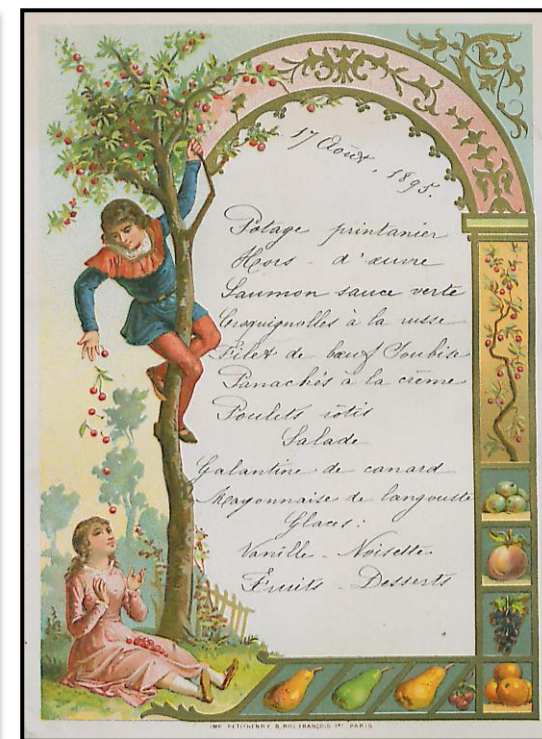 17 Août, 1895.
Potage printanier
Hors - d'œuvre
Saumon sauce verte
Croquignolles à la russe
Filet de bœuf Soubise
Panachés à la crème
Poulets rôtis
Salade
Galantine de canard
Mayonnaise de langouste
Glaces :
Vanille - Noisette
Fruits - Desserts
IMP. PETITHENRY, 8, RUE FRANÇOIS 1ER PARIS